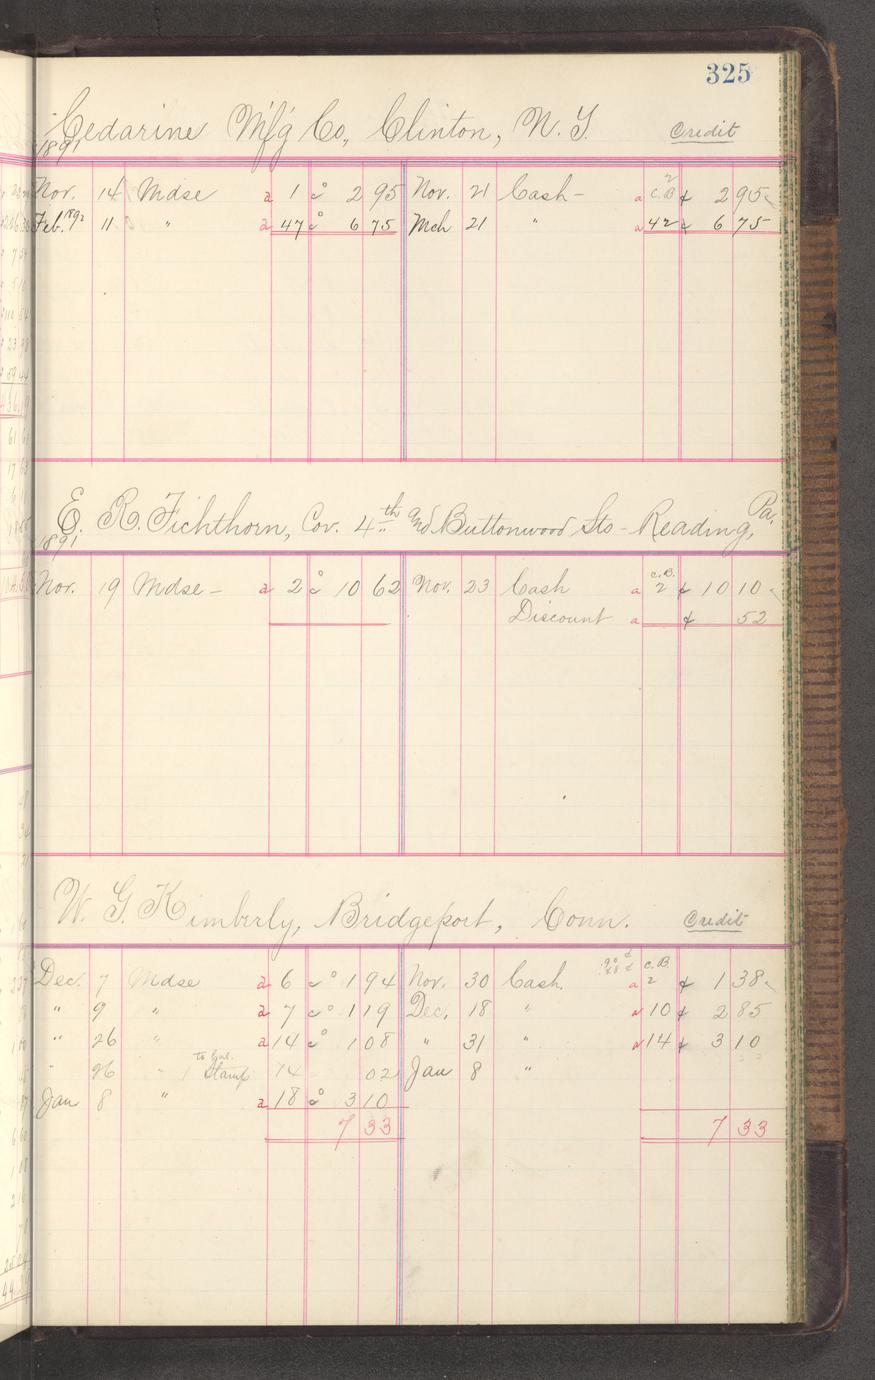 325
Cedarine Mfg Co., Clinton, N. Y. Credit
1891
Nov. 14 Mdse a 1 2 95 Nov. 21 Cash - a 2 C.B ¢ 2 95
Feb. 1892 11 " a 47 6 75 Mch 21 " a 42 ¢ 6 75
E. R. Fichthorn, Cov. 4th and Buttonwood Sts - Reading, Pa.
1891
Nov. 19 Mdse - a 2 10 62 Nov. 23 Cash a C.B. 2 ¢ 10 10
Discount a ¢ 52
W. G. Kimberly, Bridgeport, Conn. Credit
Dec. 7 Mdse a 6 1 94 Nov. 30 Cash. a C.B. 2 ¢ 1 38
" 9 " a 7 1 19 Dec. 18 " a 10 ¢ 2 85
" 26 " a 14 1 08 " 31 " a 14 ¢ 3 10
" 26 " to Bal. Stamp 14 02 Jan 8 "
Jan 8 " a 18 3 10
7 33 7 33